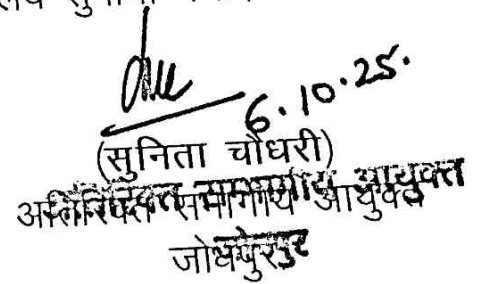 6.10.25.
(सुनिता चौधरी)
अतिरिक्त संभागीय आयुक्त
जोधपुर